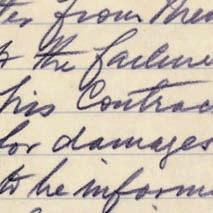 ter from
to the failure
his Contrac
for damages
to be inform